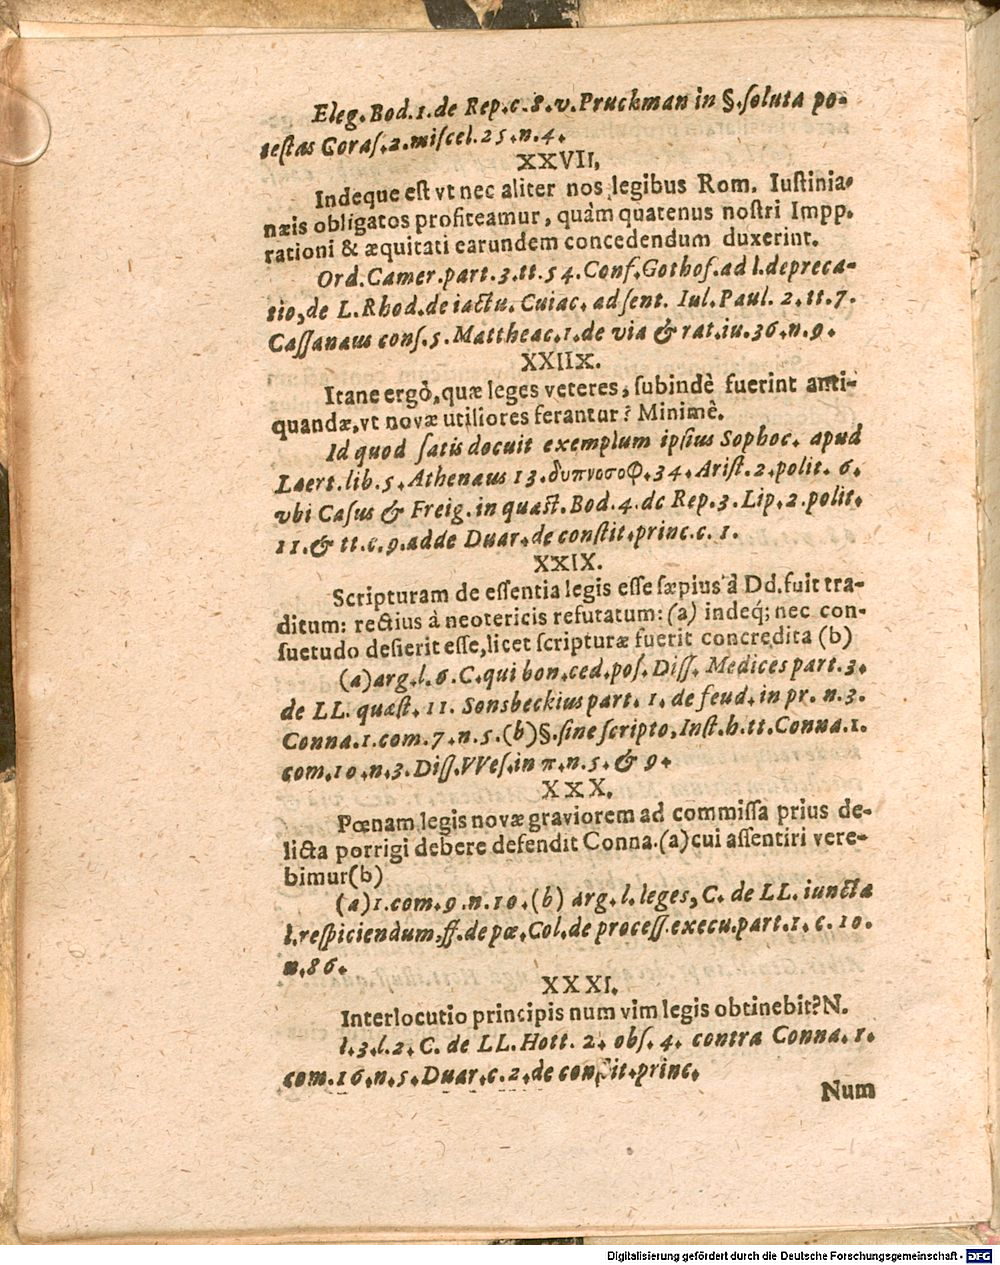 Eleg. Bod. 1. de Rep. c. 8. v. Pruckman in §. ſoluta po-
teſtas Coraſ. 2. miſcel. 25. n. 4.
XXVII.
Indeque eſt vt nec aliter nos legibus Rom. Iuſtinia-
næis obligatos profiteamur, quàm quatenus noſtri Impp.
rationi & æquitati earundem concedendum duxerint.
Ord. Camer. part. 3. tt. 54. Conſ. Gothof. ad l. depreca-
tio, de L. Rhod. de iactu. Cuiac. ad ſent. Iul. Paul. 2. tt. 7.
Caſſanæus conſ. 5. Mattheac. 1. de via & rat. iu. 36. n. 9.
XXIIX.
Itane ergò, quæ leges veteres, ſubindè fuerint anti-
quandæ, vt novæ utiliores ferantur? Minimè.
Id quod ſatis docuit exemplum ipſius Sophoc. apud
Laert. lib. 5. Athenæus 13. δυπνοσοφ. 34. Ariſt. 2. polit. 6.
vbi Caſus & Freig. in quæſt. Bod. 4. de Rep. 3. Lip. 2. polit.
11. & tt. c. 9. adde Duar. de conſtit. princ. c. 1.
XXIX.
Scripturam de eſſentia legis eſſe ſæpius à Dd. fuit tra-
ditum: rectius à neotericis refutatum: (a) indeq́; nec con-
ſuetudo deſierit eſſe, licet ſcripturæ fuerit concredita (b)
(a) arg. l. 6. C. qui bon. ced. poſ. Diſſ. Medices part. 3.
de LL. quæſt. 11. Sonsbeckius part. 1. de feud. in pr. n. 3.
Conna. 1. com. 7. n. 5. (b) §. ſine ſcripto, Inſt. h. tt. Conna. 1.
com. 10. n. 3. Diſſ. VVeſ. in π. n. 5. & 9.
XXX.
Pœnam legis novæ graviorem ad commiſſa prius de-
licta porrigi debere defendit Conna. (a) cui aſſentiri vere-
bimur (b)
(a) 1. com. 9. n. 10. (b) arg. l. leges, C. de LL. iuncta
l. reſpiciendum, ff. de pœ. Col. de proceſſ. execu. part. 1. c. 10.
n. 86.
XXXI.
Interlocutio principis num vim legis obtinebit? N.
l. 3. l. 2. C. de LL. Hott. 2. obſ. 4. contra Conna. 1.
com. 16. n. 5. Duar. c. 2. de conſtit. princ.
Num
Digitalisierung gefördert durch die Deutsche Forschungsgemeinschaft - DFG